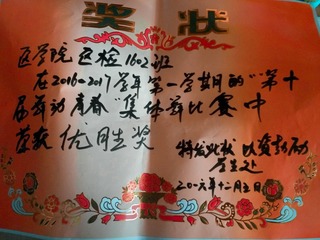 奖状
医学院医检1602班
在2016-2017学年第一学期的“第十
届舞动青春”集体舞比赛中
荣获 优胜奖
特发此状 以资鼓励
学生处
二〇一六年十二月五日